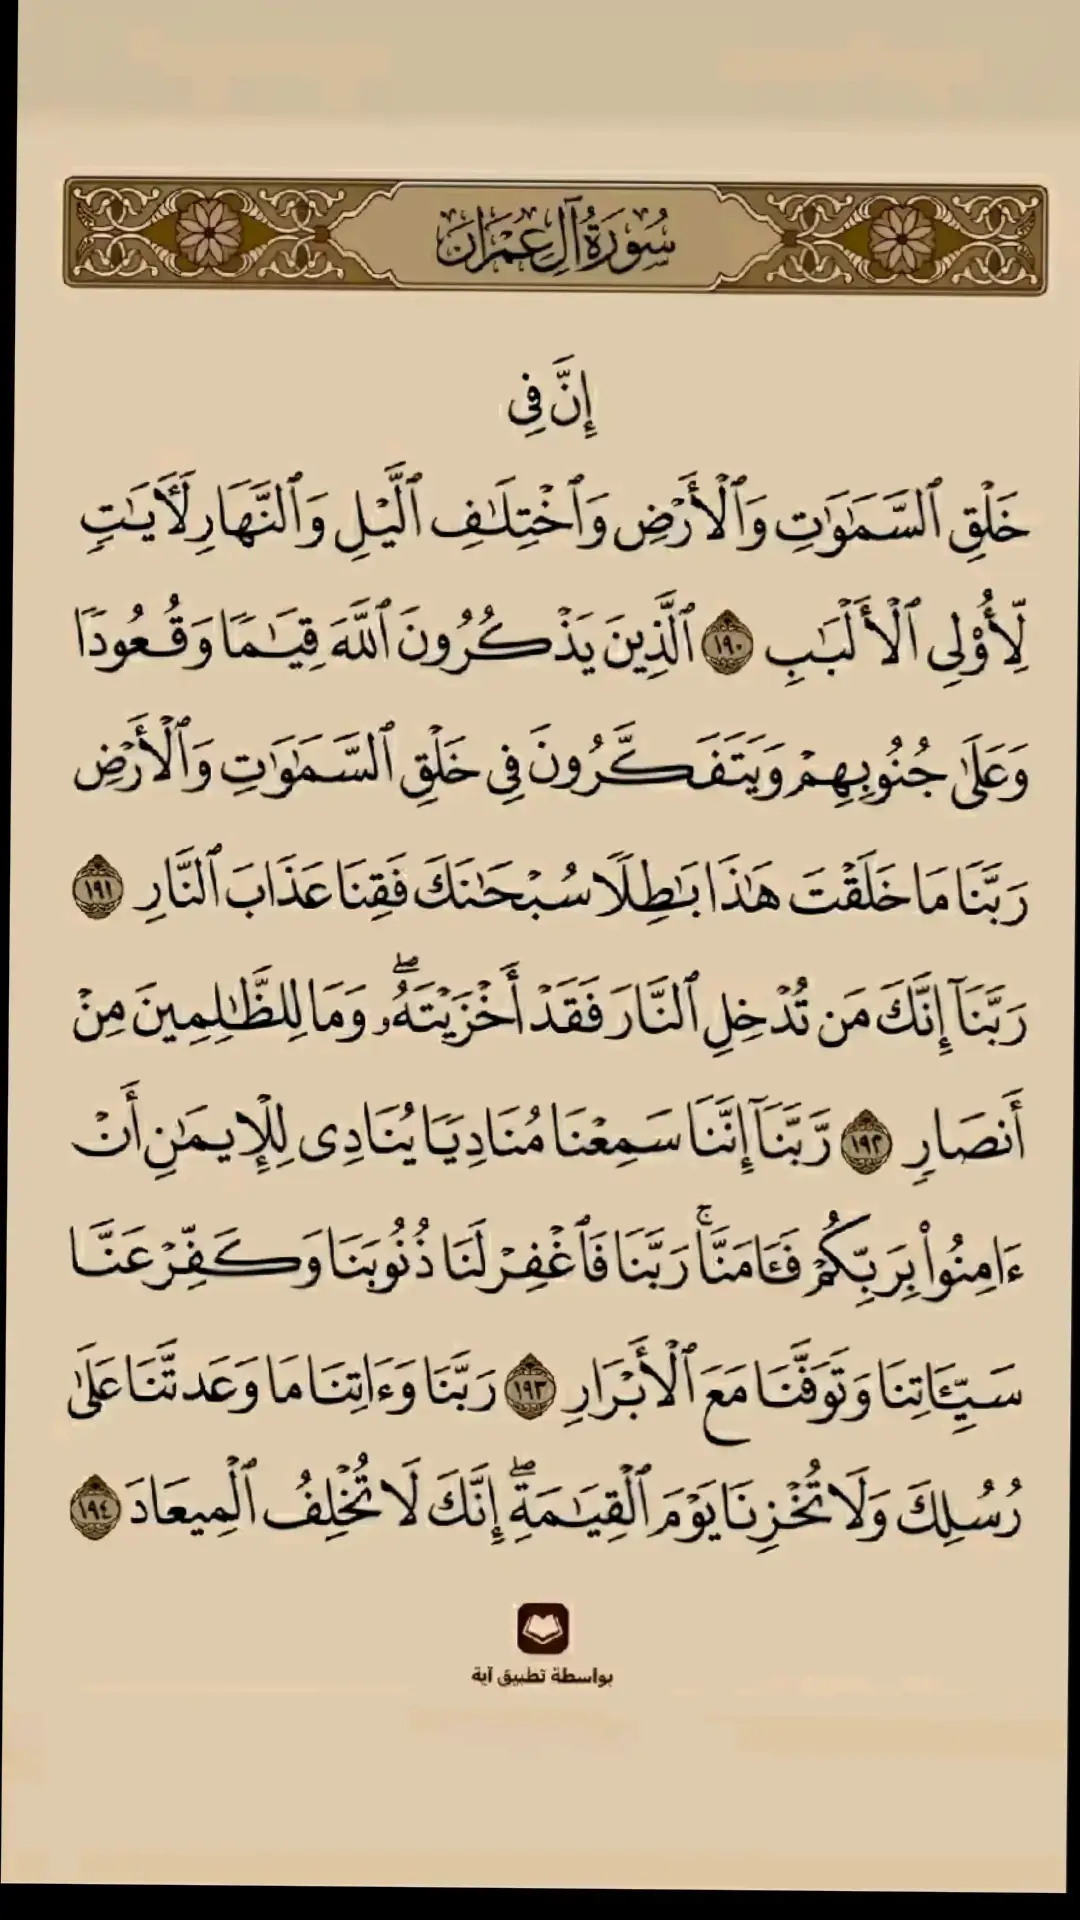 سُورَةُ آلِ عِمْرَان
إِنَّ فِي
خَلْقِ ٱلسَّمَٰوَٰتِ وَٱلْأَرْضِ وَٱخْتِلَٰفِ ٱلَّيْلِ وَٱلنَّهَارِ لَأٓيَٰتٍ
لِّأُو۟لِي ٱلْأَلْبَٰبِ ١٩٠ ٱلَّذِينَ يَذْكُرُونَ ٱللَّهَ قِيَٰمًا وَقُعُودًا
وَعَلَىٰ جُنُوبِهِمْ وَيَتَفَكَّرُونَ فِي خَلْقِ ٱلسَّمَٰوَٰتِ وَٱلْأَرْضِ
رَبَّنَا مَا خَلَقْتَ هَٰذَا بَٰطِلًا سُبْحَٰنَكَ فَقِنَا عَذَابَ ٱلنَّارِ ١٩١
رَبَّنَآ إِنَّكَ مَن تُدْخِلِ ٱلنَّارَ فَقَدْ أَخْزَيْتَهُۥۖ وَمَا لِلظَّٰلِمِينَ مِنْ
أَنصَارٍ ١٩٢ رَّبَّنَآ إِنَّنَا سَمِعْنَا مُنَادِيًا يُنَادِي لِلْإِيمَٰنِ أَنْ
ءَامِنُوا۟ بِرَبِّكُمْ فَـَٔامَنَّاۚ رَبَّنَا فَٱغْفِرْ لَنَا ذُنُوبَنَا وَكَفِّرْ عَنَّا
سَيِّـَٔاتِنَا وَتَوَفَّنَا مَعَ ٱلْأَبْرَارِ ١٩٣ رَبَّنَا وَءَاتِنَا مَا وَعَدتَّنَا عَلَىٰ
رُسُلِكَ وَلَا تُخْزِنَا يَوْمَ ٱلْقِيَٰمَةِۖ إِنَّكَ لَا تُخْلِفُ ٱلْمِيعَادَ ١٩٤
بواسطة تطبيق آية